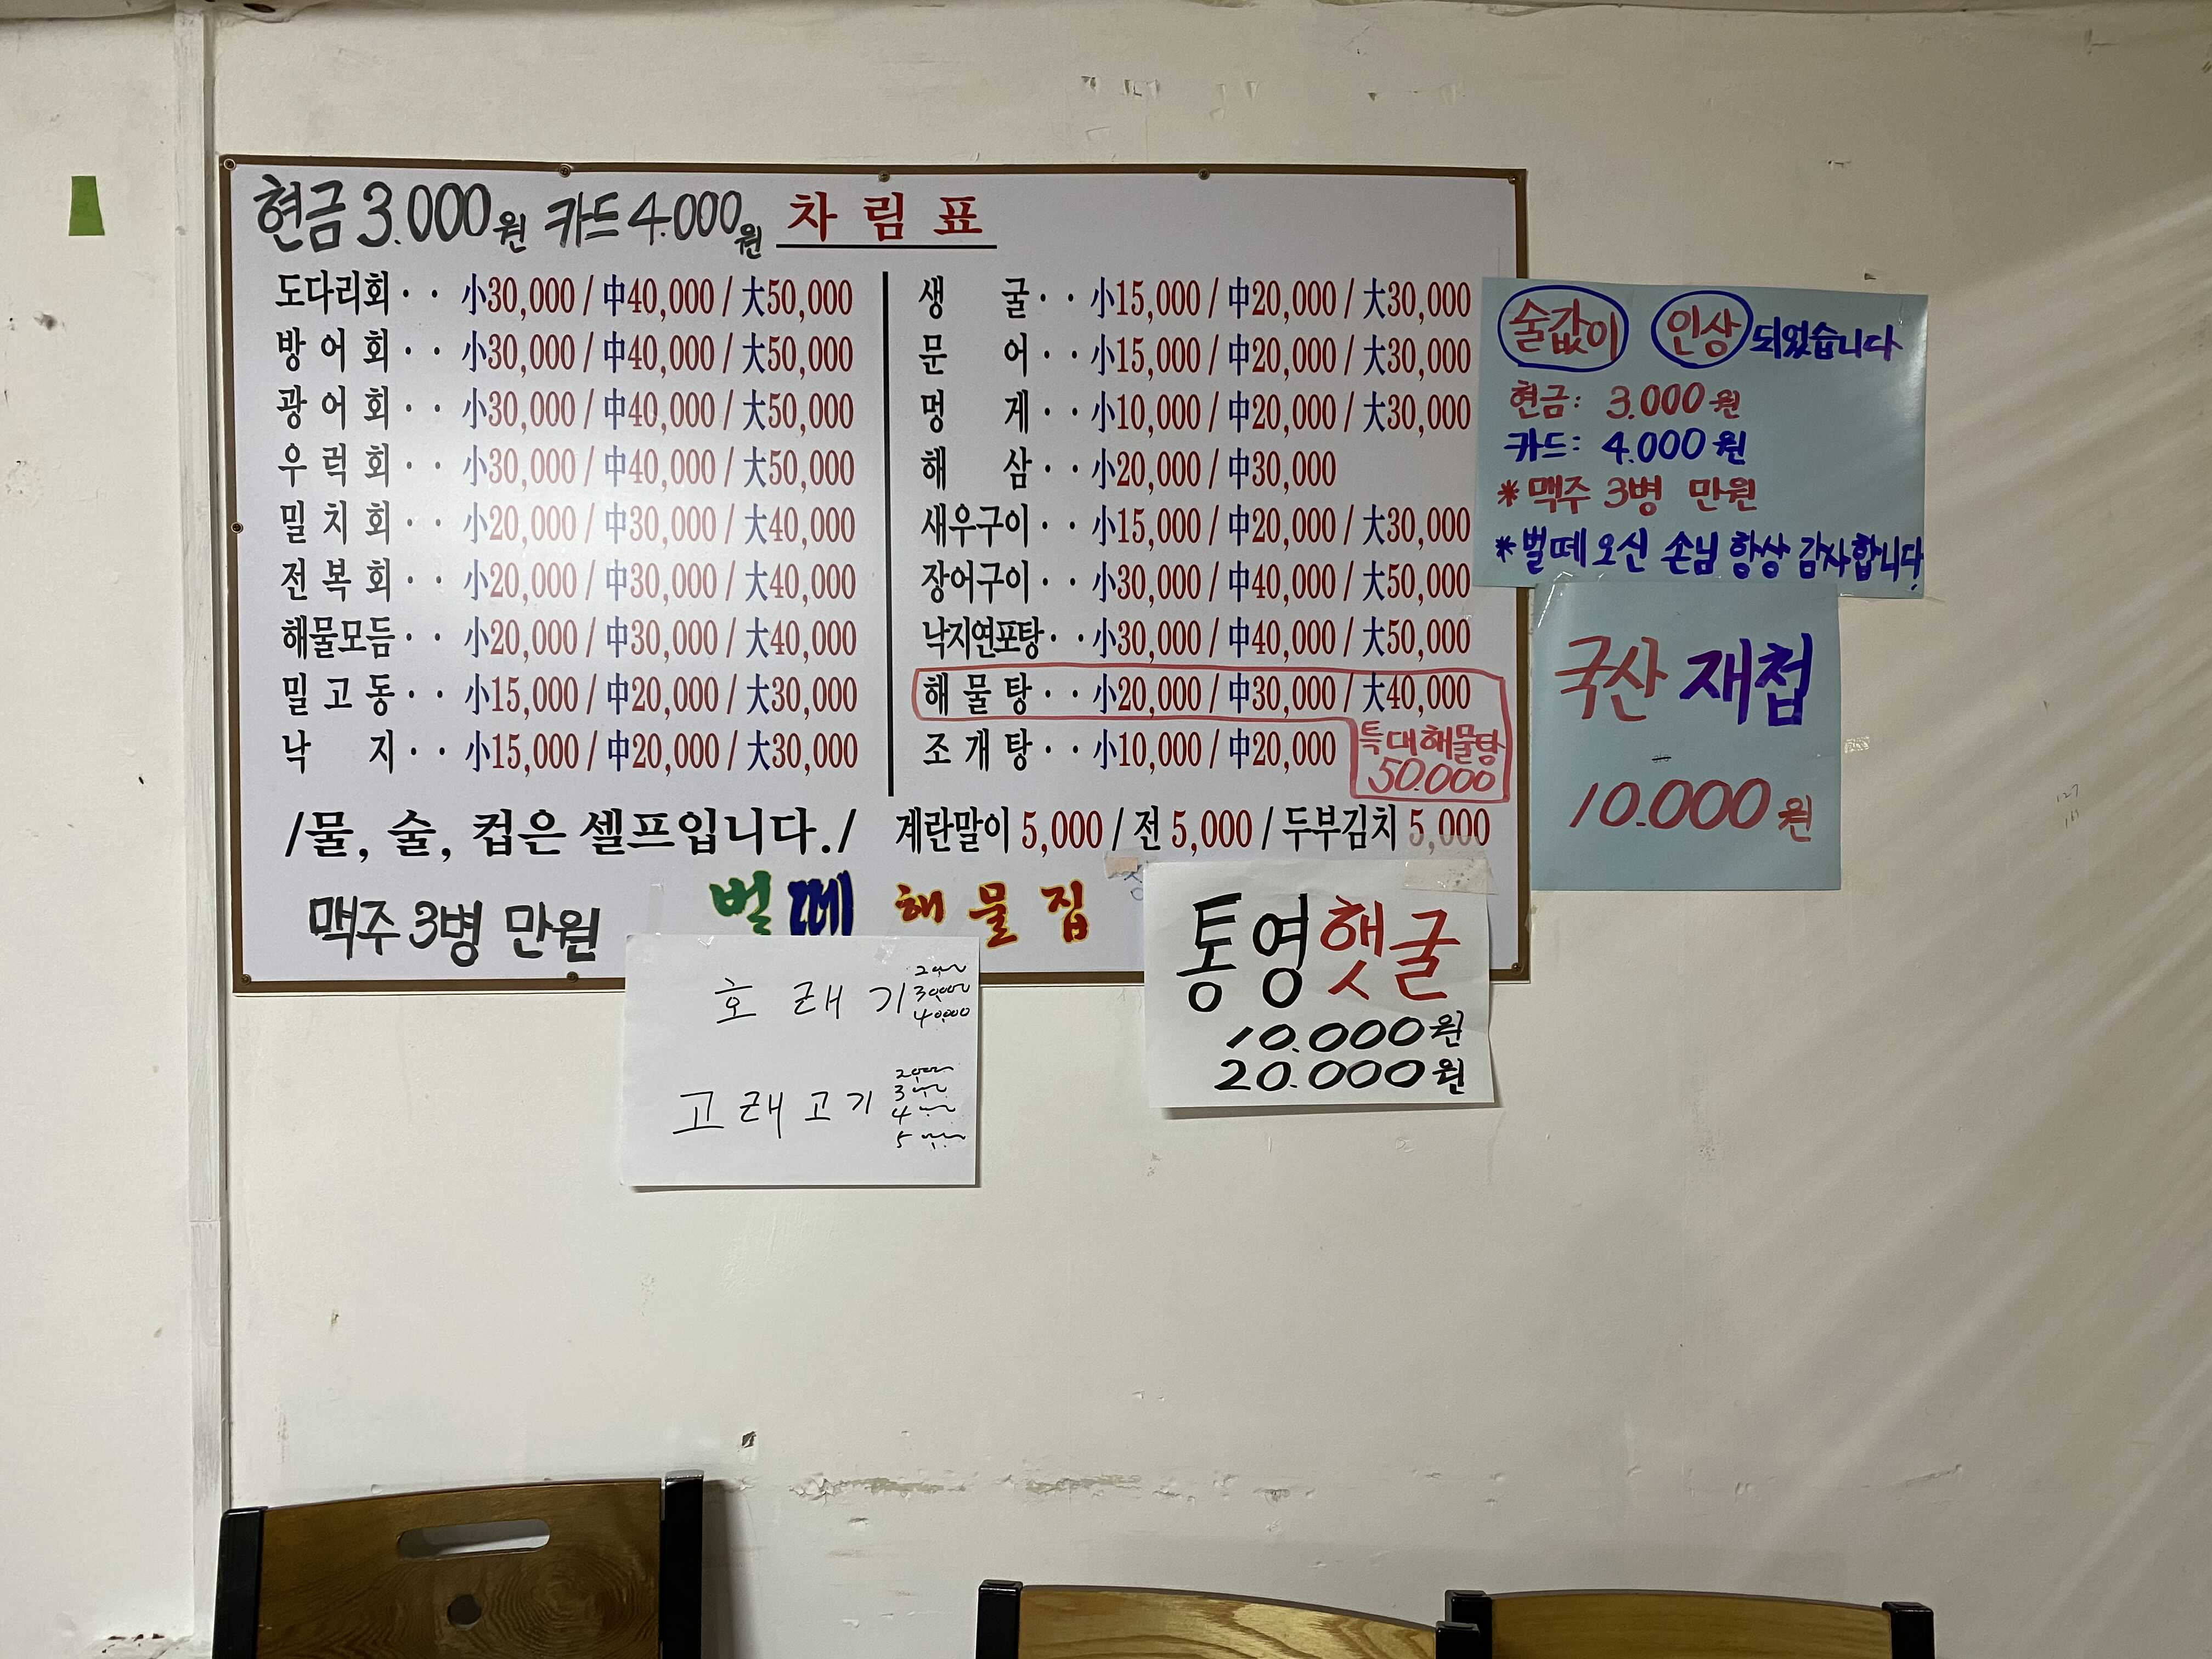 현금 3.000원 카드 4.000원 차림표
도다리회 · · 小30,000 / 中40,000 / 大50,000
방어회 · · 小30,000 / 中40,000 / 大50,000
광어회 · · 小30,000 / 中40,000 / 大50,000
우럭회 · · 小30,000 / 中40,000 / 大50,000
밀치회 · · 小20,000 / 中30,000 / 大40,000
전복회 · · 小20,000 / 中30,000 / 大40,000
해물모듬 · · 小20,000 / 中30,000 / 大40,000
밀고동 · · 小15,000 / 中20,000 / 大30,000
낙지 · · 小15,000 / 中20,000 / 大30,000
생굴 · · 小15,000 / 中20,000 / 大30,000
문어 · · 小15,000 / 中20,000 / 大30,000
멍게 · · 小10,000 / 中20,000 / 大30,000
해삼 · · 小20,000 / 中30,000
새우구이 · · 小15,000 / 中20,000 / 大30,000
장어구이 · · 小30,000 / 中40,000 / 大50,000
낙지연포탕 · · 小30,000 / 中40,000 / 大50,000
해물탕 · · 小20,000 / 中30,000 / 大40,000
조개탕 · · 小10,000 / 中20,000
특대해물탕
50.000
/물, 술, 컵은 셀프입니다./
계란말이 5,000 / 전 5,000 / 두부김치 5,000
맥주 3병 만원
벌떼 해물집
호래기
30000
40000
고래고기
통영햇굴
10.000원
20.000원
술값이 인상되었습니다
현금: 3.000원
카드: 4.000원
*맥주 3병 만원
*벌떼 오신 손님 항상 감사합니다
국산 재첩
10.000원